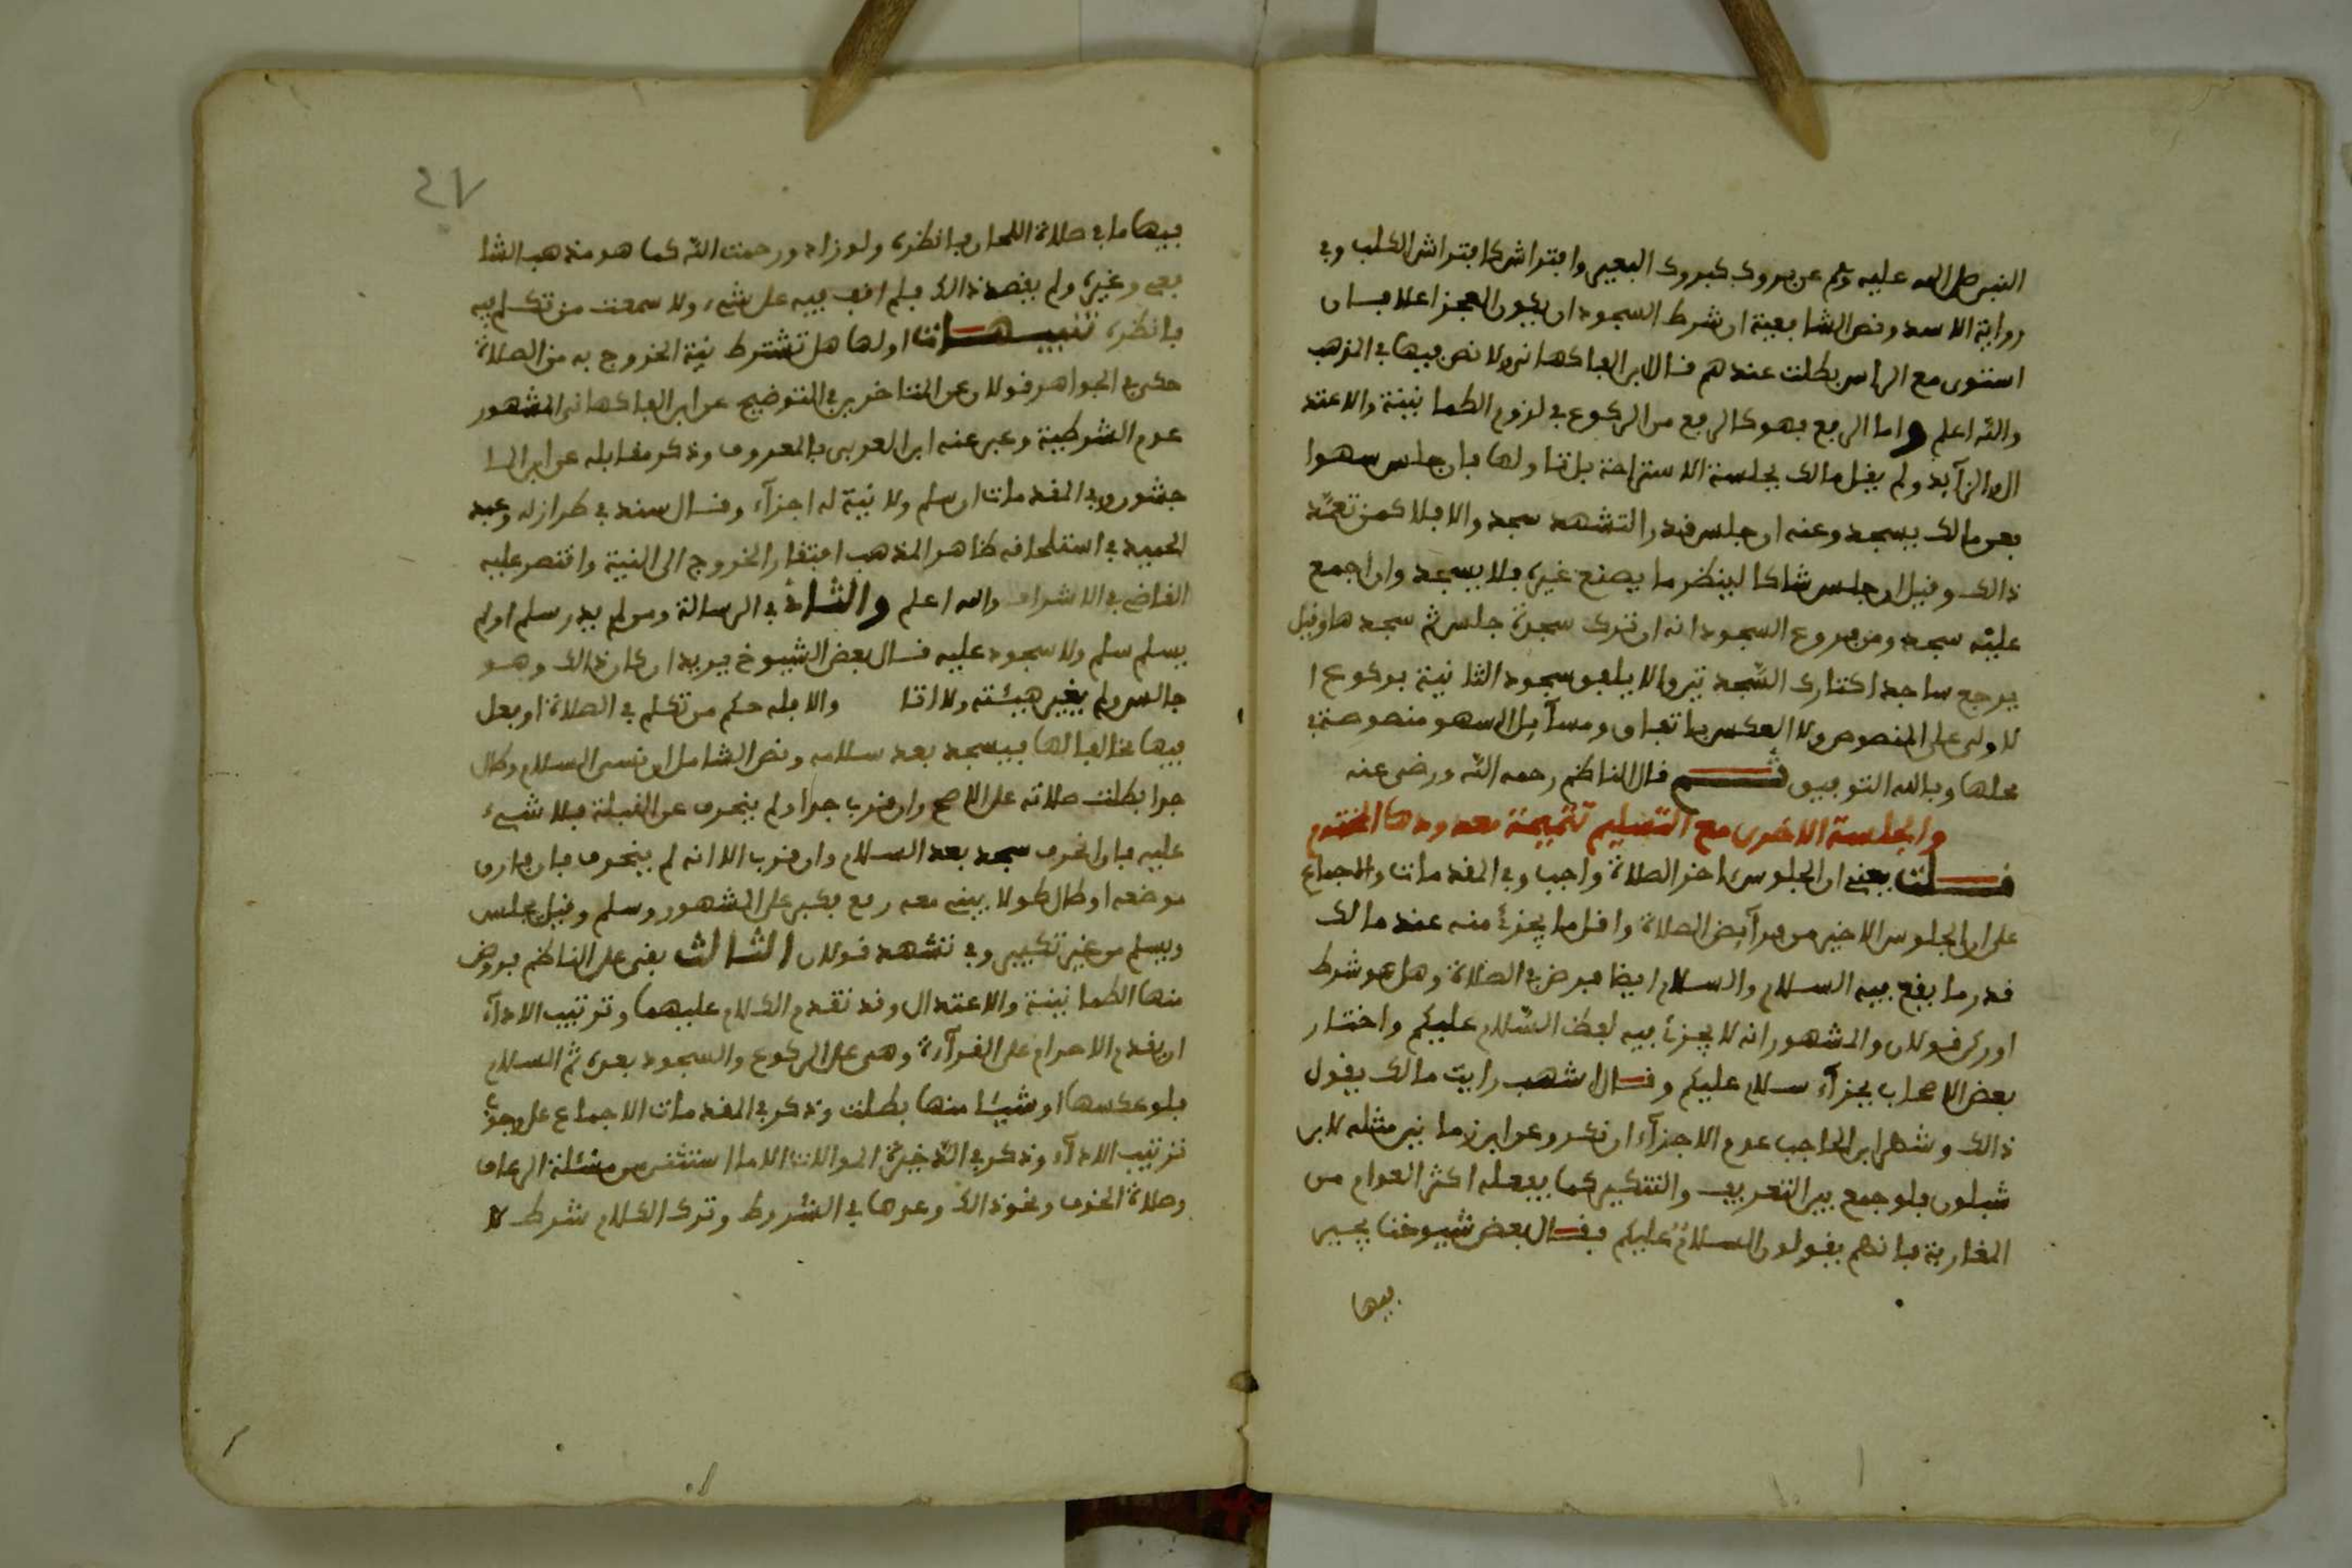 النبي صلى الله عليه وسلم عن بروك كبروك البعير وافتراش كافتراش الكلب وفي
رواية الاسد ونص الشافعية ان شرط السجود ان يكون العجز اعلا فان
استوى مع الراس بطلت عندهم قال ابن الفاكهاني ولا نص فيها في المذهب
والله اعلم واما الرفع فهو كالرفع من الركوع في لزوم الطمانينة والاعتد
ال والزآيد ولم يقل مالك بجلسة الاستراحة بل تناولها فان جلس سهوا
فعن مالك يسجد وعنه ان جلس قدر التشهد سجد والا فلا كمن تعمد
ذالك وقيل ان جلس شاكا لينظر ما يصنع غيره فلا يسجد وان اجمع
عليه سجد ومن فروع السجود انه ان ترك سجدة جلس ثم سجدها وقيل
يرجع ساجدا كتارك السجدتين والا يلفق سجود الثانية بركوع ا
لاولى على المنصوص ولا العكس باتفاق ومسآيل السهو منصوصة في
محلها وبالله التوفيق ثم قال الناظم رحمه الله ورضي عنه
والجلسة الاخرى مع التسليم تتميمة معدودها المختتم
قلت يعني ان الجلوس اخر الصلاة واجب وفي المقدمات والاجماع
على ان الجلوس الاخير من فرآيض الصلاة واقل ما يجزئ منه عند مالك
قدر ما يقع فيه السلام والسلام ايضا فرض في الصلاة وهل هو شرط
او ركن قولان والمشهور انه لا يجزئ فيه لفظ السلام عليكم واختار
بعض الاصحاب يجزآء سلام عليكم وقال اشهب رايت مالك يقول
ذالك وشهر ابن الحاجب عدم الاجزآء ان نكر وعن ابن زمانين مثله لابن
شبلون فلو جمع بين التعريف والتنكير كما يفعله اكثر العوام من
المغاربة فانهم يقولون السلام عليكم فقال بعض شيوخنا يجيء
فيها
٢٧
فيها ما في صلاة اللحان فانظره ولو زاد ورحمت الله كما هو مذهب الشا
فعي وغيره ولم يقصد ذالك فلم اقف فيه على شيء ولا سمعت من تكلم فيه
فانظره تنبيهات اولها هل تشترط نية الخروج به من الصلاة
حكى في الجواهر قولان عن المتاخرين في التوضيح عن ابن الفاكهاني المشهور
عدم الشرطية وعبر عنه ابن العربي بالمعروف وذكر مقابله عن ابن الما
جشون وفي المقدمات ان سلم ولا نية له اجزآء وقال سند في طرازه وعبد
الحميد في استلحاقه ظاهر المذهب افتقار الخروج الى النية واقتصر عليه
القاضي في الاشراف والله اعلم والثاني في الرسالة ومن لم يدر سلم او لم
يسلم سلم ولا سجود عليه قال بعض الشيوخ يريد ان كان ذالك وهو
جالس ولم يغير هيئته ولا اتا والا فله حكم من تكلم في الصلاة او فعل
فيها مخالفا لها فيسجد بعد سلامه ونص الشامل ان نسي السلام وطال
جدا بطلت صلاته على الاصح وان قرب جدا ولم ينحرف عن القبلة فلا شيء
عليه فان انحرف سجد بعد السلام وان قرب الا انه لم ينحرف فان فارق
موضعه او طال طولا يبني معه رجع بكبر على المشهور وسلم وقيل يجلس
ويسلم من غير تكبير وفي تشهد قولان الثالث بقي على الناظم فروض
منها الطمانينة والاعتدال وقد تقدم الكلام عليهما وترتيب الادآء
ان يقدم الاحرام على القرآءة وهي على الركوع والسجود بعده ثم السلام
فلو عكسها او شيئا منها بطلت وذكر في المقدمات الاجماع على وجوب
ترتيب الادآء وذكر في الذخيرة الموالات الا ما استثني من مسئلة الرعاف
وصلاة الخوف ونحو ذالك وعدها في الشروط وترك الكلام شرط لا